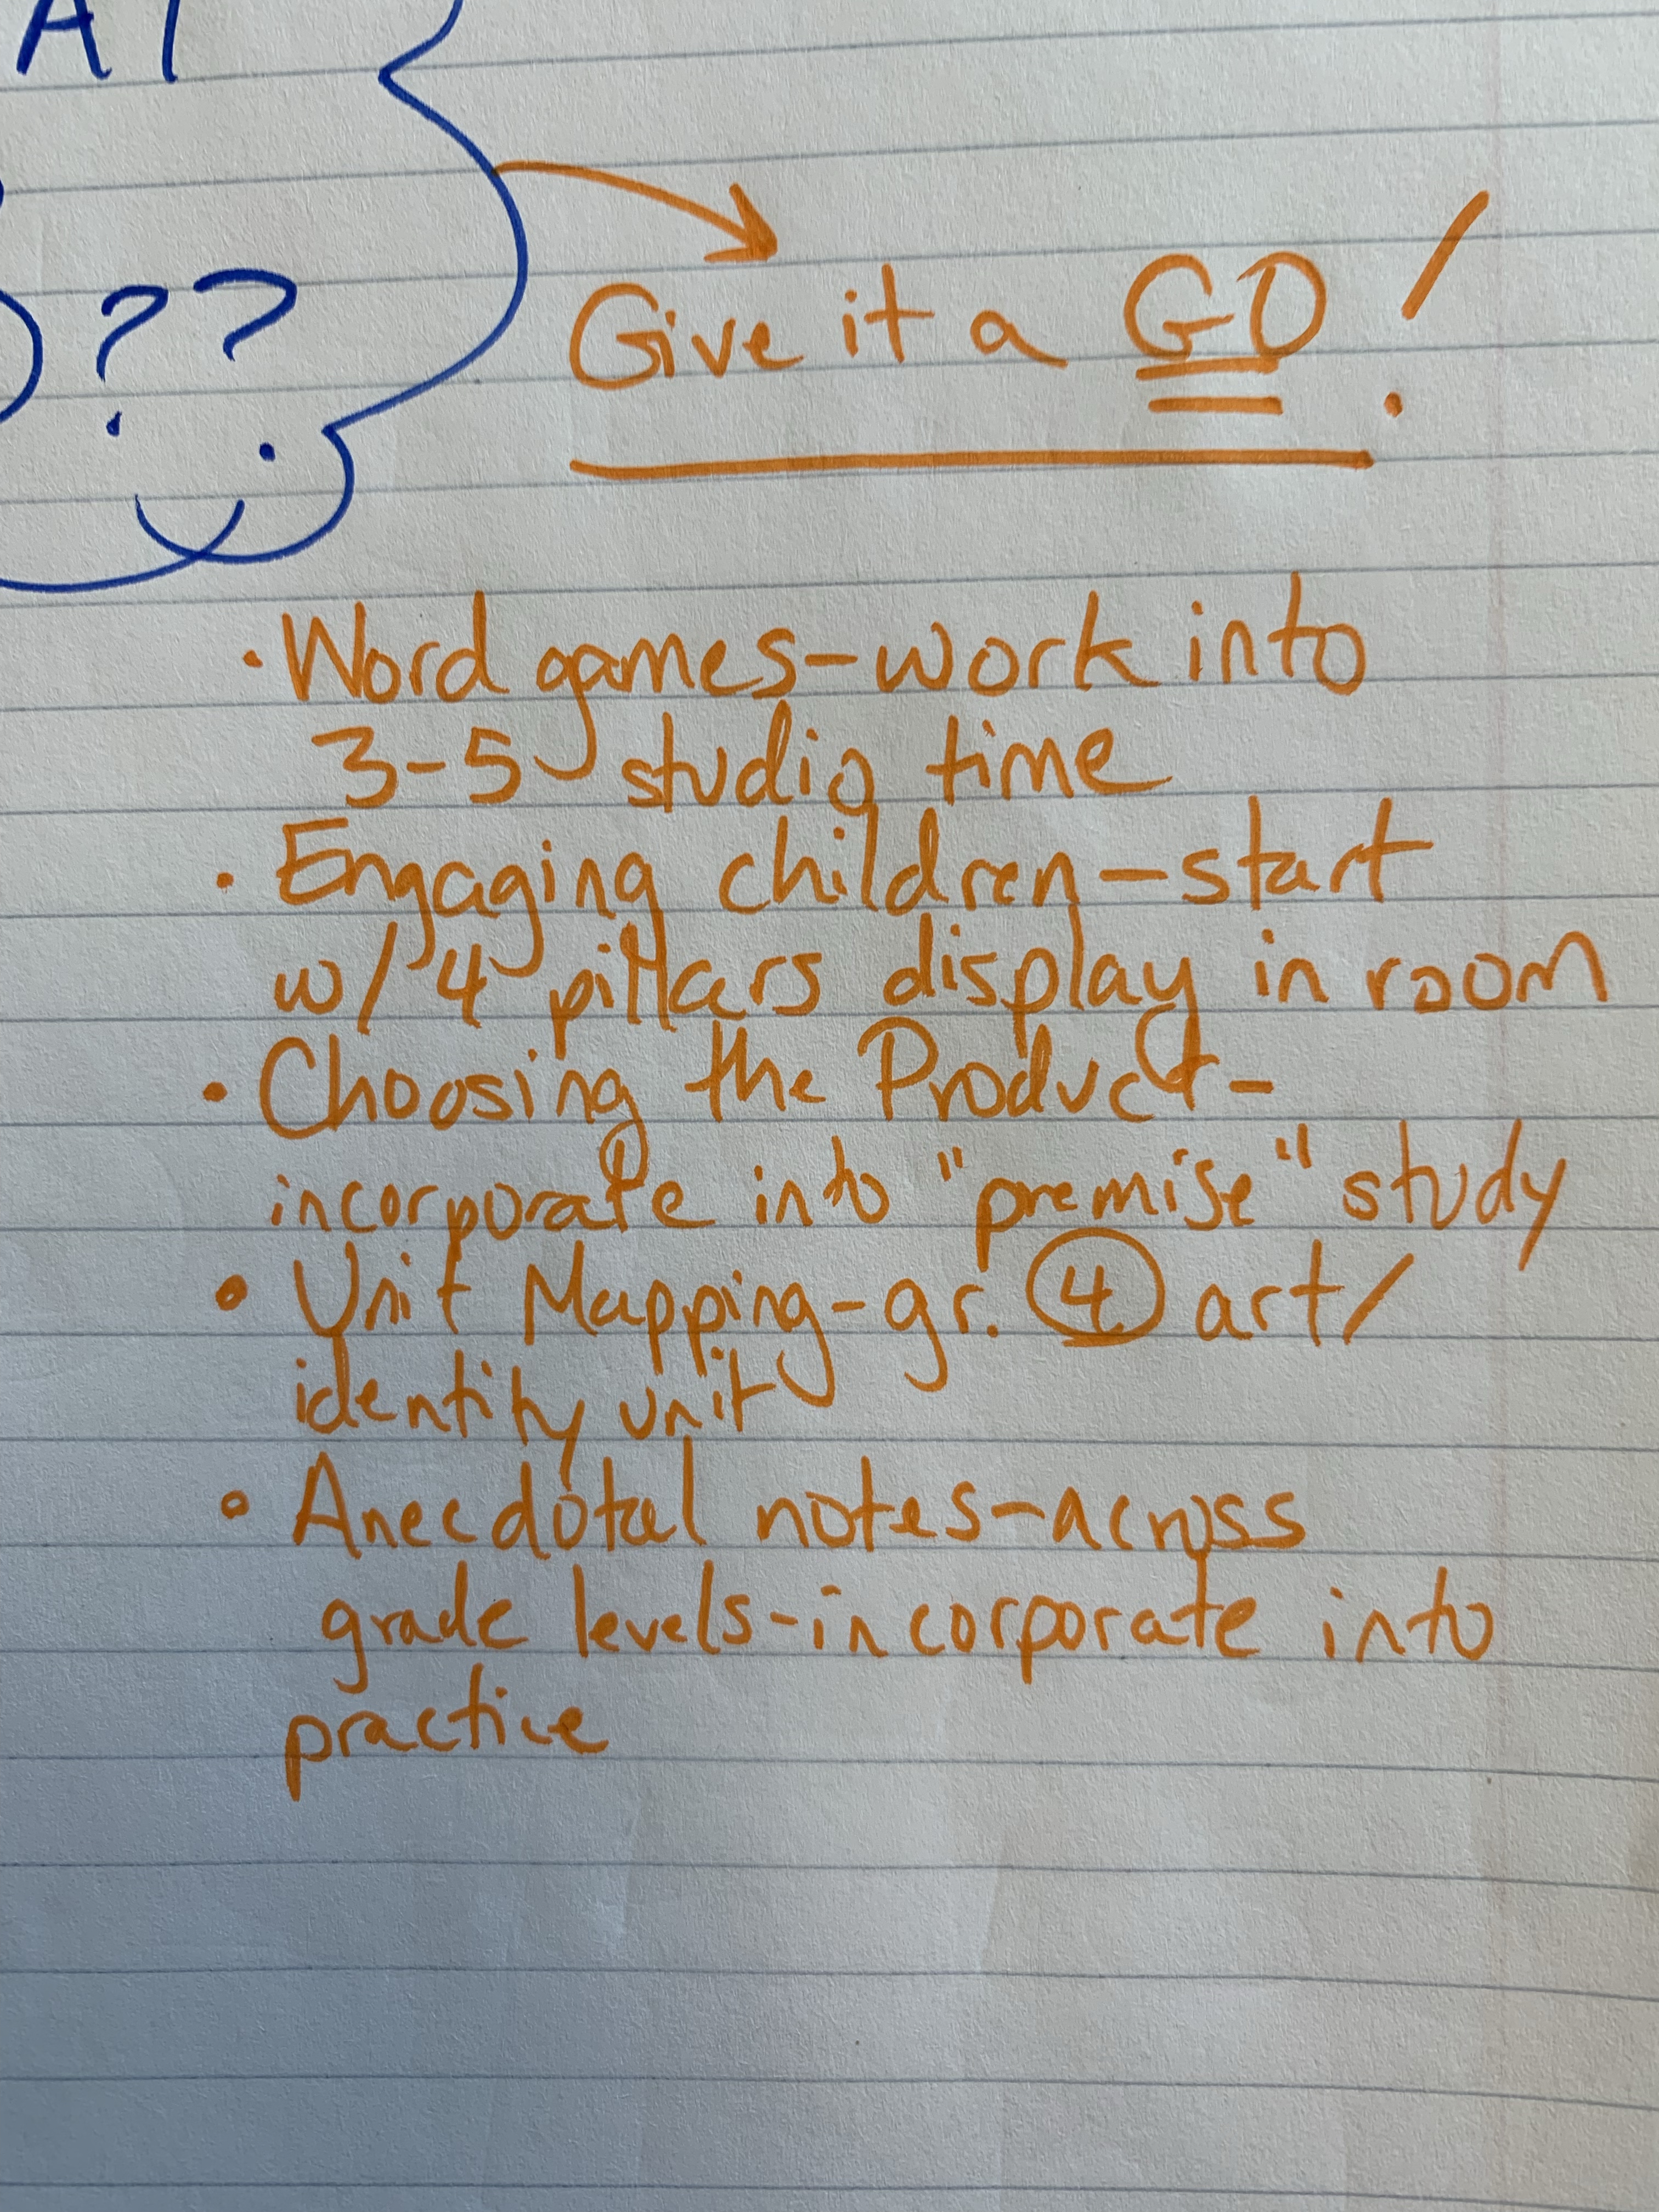 ??
Give it a GO!
• Word games - work into
3-5 studio time
• Engaging children - start
w/ 4 pillars display in room
• Choosing the Product -
incorporate into "premise" study
• Unit Mapping - gr. 4 art/
identity unit
• Anecdotal notes - across
grade levels - incorporate into
practice